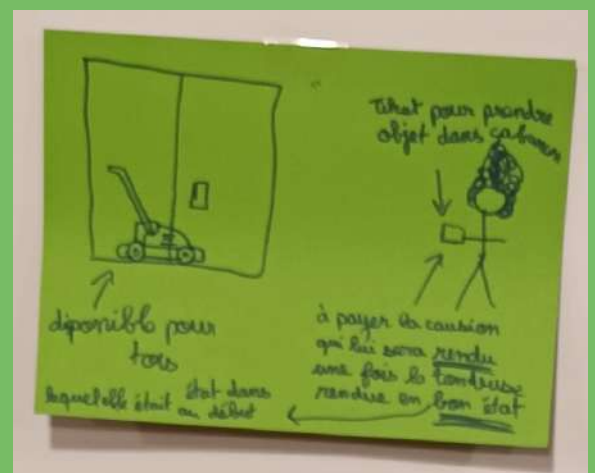 Tiket pour prendre
objet dans cabanon
disponible pour
tors
à payer la caution
qui lui sera rendu
une fois la tondeuse
rendue en bon état
état dans
laquel elle était au début